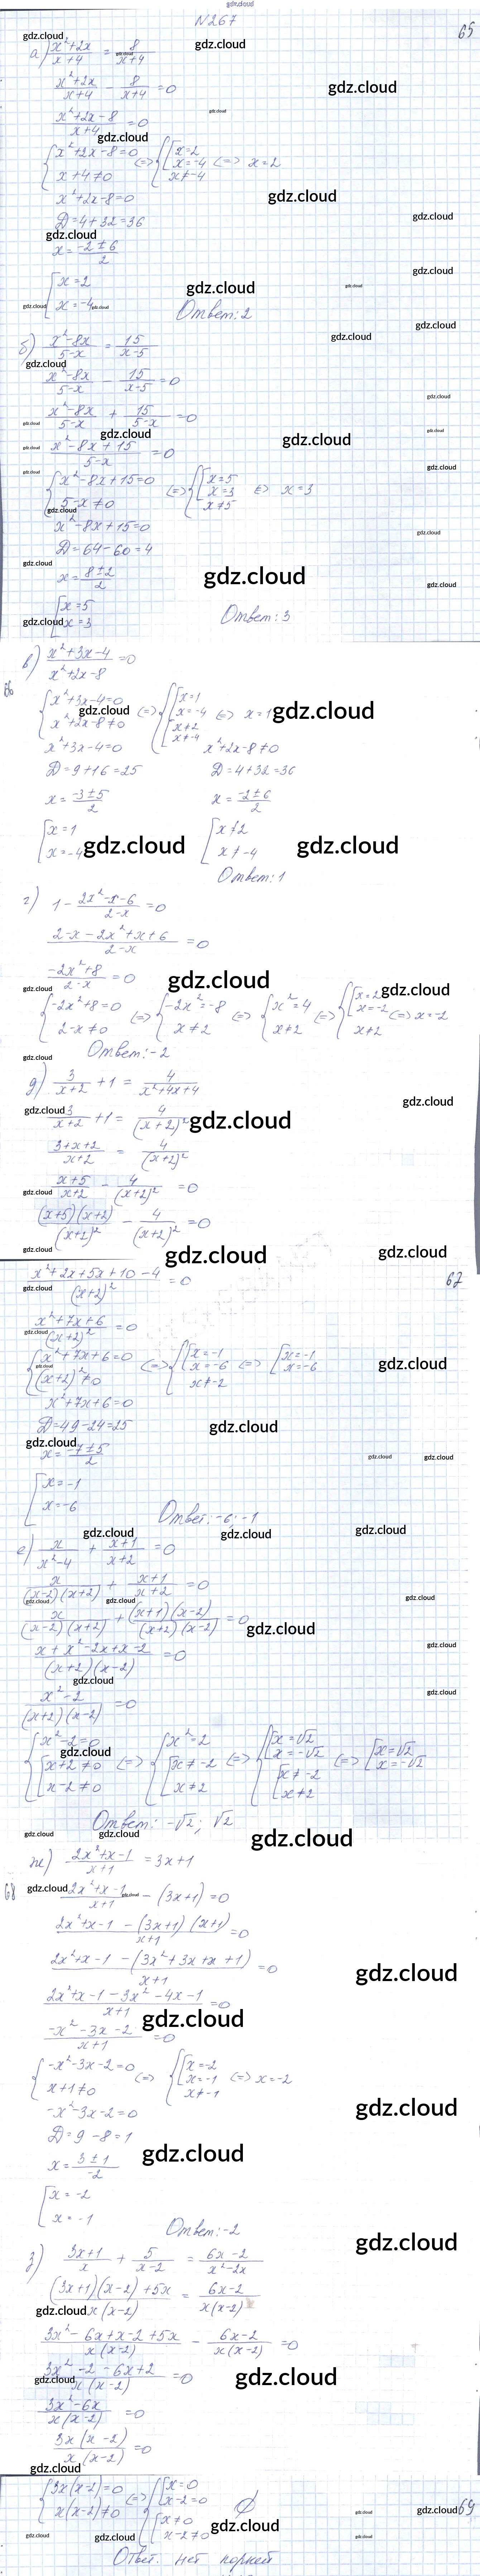 gdz.cloud
N 267
65
а) (x²+2x)/(x+4) = 8/(x+4)
(x²+2x)/(x+4) - 8/(x+4) = 0
(x²+2x-8)/(x+4) = 0
{ x²+2x-8=0 ; x+4≠0 (=) { [ x=2 ; x=-4 ; x≠-4 (=) x=2
x²+2x-8=0
D=4+32=36
x = (-2±6)/2
[ x=2
x=-4
Ответ: 2
б) (x²-8x)/(5-x) = 15/(x-5)
(x²-8x)/(5-x) - 15/(x-5) = 0
(x²-8x)/(5-x) + 15/(5-x) = 0
(x²-8x+15)/(5-x) = 0
{ x²-8x+15=0 ; 5-x≠0 (=) { [ x=5 ; x=3 ; x≠5 (=) x=3
x²-8x+15=0
D=64-60=4
x = (8±2)/2
[ x=5
x=3
Ответ: 3
66
в) (x²+3x-4)/(x²+2x-8) = 0
{ x²+3x-4=0 ; x²+2x-8≠0 (=) { [ x=1 ; x=-4 ; [ x≠2 ; x≠-4 (=) x=1
x²+3x-4=0 x²+2x-8≠0
D=9+16=25 D=4+32=36
x = (-3±5)/2 x = (-2±6)/2
[ x=1 [ x≠2
x=-4 x≠-4
Ответ: 1
г) 1 - (2x²-x-6)/(2-x) = 0
(2-x-2x²+x+6)/(2-x) = 0
(-2x²+8)/(2-x) = 0
{ -2x²+8=0 ; 2-x≠0 (=) { -2x²=-8 ; x≠2 (=) { x²=4 ; x≠2 (=) { [ x=2 ; x=-2 ; x≠2 (=) x=-2
Ответ: -2
д) 3/(x+2) + 1 = 4/(x²+4x+4)
3/(x+2) + 1 = 4/(x+2)²
(3+x+2)/(x+2) = 4/(x+2)²
(x+5)/(x+2) - 4/(x+2)² = 0
(x+5)(x+2)/(x+2)² - 4/(x+2)² = 0
67
(x²+2x+5x+10-4)/(x+2)² = 0
(x²+7x+6)/(x+2)² = 0
{ x²+7x+6=0 ; (x+2)²≠0 (=) { [ x=-1 ; x=-6 ; x≠-2 (=) [ x=-1 ; x=-6
x²+7x+6=0
D=49-24=25
x = (-7±5)/2
[ x=-1
x=-6
Ответ: -6; -1
е) x/(x²-4) + (x+1)/(x+2) = 0
x/((x-2)(x+2)) + (x+1)/(x+2) = 0
x/((x-2)(x+2)) + (x+1)(x-2)/((x+2)(x-2)) = 0
(x+x²-2x+x-2)/((x+2)(x-2)) = 0
(x²-2)/((x+2)(x-2)) = 0
{ x²-2=0 ; [ x+2≠0 ; x-2≠0 (=) { x²=2 ; [ x≠-2 ; x≠2 (=) { [ x=√2 ; x=-√2 ; [ x≠-2 ; x≠2 (=) [ x=√2 ; x=-√2
Ответ: -√2; √2
ж) (2x²+x-1)/(x+1) = 3x+1
68
(2x²+x-1)/(x+1) - (3x+1) = 0
(2x²+x-1-(3x+1)(x+1))/(x+1) = 0
(2x²+x-1-(3x²+3x+x+1))/(x+1) = 0
(2x²+x-1-3x²-4x-1)/(x+1) = 0
(-x²-3x-2)/(x+1) = 0
{ -x²-3x-2=0 ; x+1≠0 (=) { [ x=-2 ; x=-1 ; x≠-1 (=) x=-2
-x²-3x-2=0
D=9-8=1
x = (3±1)/-2
[ x=-2
x=-1
Ответ: -2
з) (3x+1)/x + 5/(x-2) = (6x-2)/(x²-2x)
((3x+1)(x-2)+5x)/(x(x-2)) = (6x-2)/(x(x-2))
(3x²-6x+x-2+5x)/(x(x-2)) - (6x-2)/(x(x-2)) = 0
(3x²-2-6x+2)/(x(x-2)) = 0
(3x²-6x)/(x(x-2)) = 0
3x(x-2)/(x(x-2)) = 0
{ 3x(x-2)=0 ; x(x-2)≠0 (=) { [ x=0 ; x-2=0 ; [ x≠0 ; x-2≠0 ∅
69
Ответ: нет корней